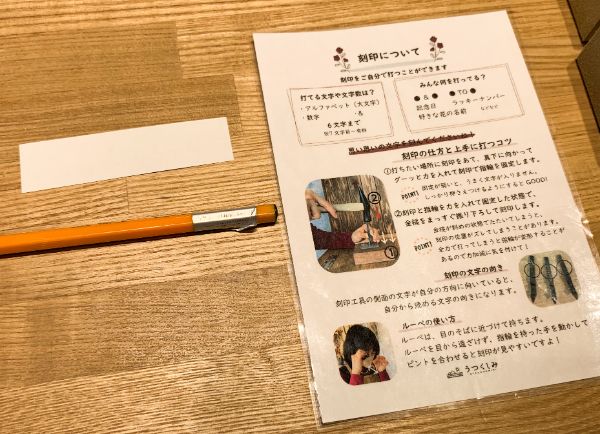 刻印について
刻印をご自分で打つことができます
打てる文字や文字数は？
・アルファベット（大文字）
・数字　・&
6文字まで
みんな何を打ってる？
● & ●　● TO ●
記念日　ラッキーナンバー
好きな花の名前　などなど
刻印の仕方と上手に打つコツ
①打ちたい場所に刻印をあて、真下に向かって
グーッと力を入れて刻印で指輪を固定します。
POINT!
固定が弱いと、うまく文字が入りません。
しっかり押さえつけるようにするとGOOD!
②刻印と指輪を力を入れて固定した状態で、
金槌をまっすぐ振り下ろして刻印します。
POINT!
金槌が斜めの状態でたたいてしまうと、
刻印の位置がズレてしまうことがあります。
全力で打ってしまうと指輪が変形することが
あるので力加減に気を付けて！
②
①
刻印の文字の向き
刻印工具の側面の文字が自分の方向に向いていると、
自分から読める文字の向きになります。
ルーペの使い方
ルーペは、目のそばに近づけて持ちます。
ルーペを目から遠ざけず、指輪を持った手を動かして
ピントを合わせると刻印が見やすいですよ！
うつくしみ